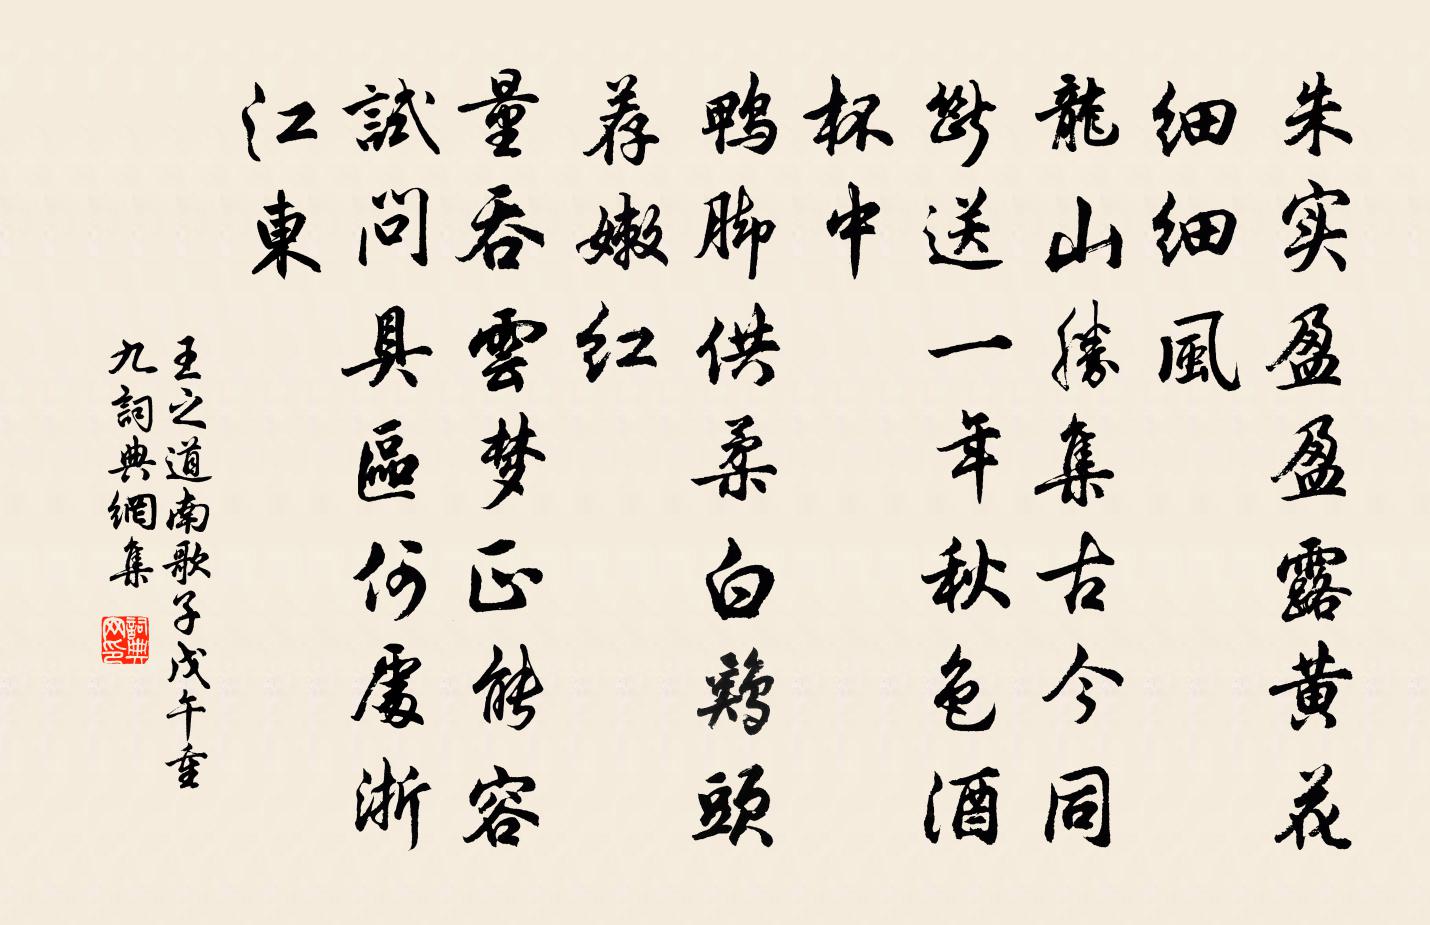 朱实盈盈露黄花
细细風
龍山勝集古今同
斷送一年秋色酒
杯中
鸭脚供柔白鷄頭
荐嫩红
量吞雲梦正能容
試問具區何處浙
江東
王之道南歌子戊午重
九詞典網集
詞典网印